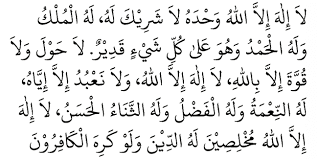 لاَ إِلٰهَ إِلاَّ اللهُ وَحْدَهُ لاَ شَرِيْكَ لَهُ، لَهُ الْمُلْكُ
وَلَهُ الْحَمْدُ وَهُوَ عَلَىٰ كُلِّ شَيْءٍ قَدِيْرٌ. لاَ حَوْلَ وَلاَ
قُوَّةَ إِلاَّ بِاللهِ، لاَ إِلٰهَ إِلاَّ اللهُ، وَلاَ نَعْبُدُ إِلاَّ إِيَّاهُ،
لَهُ النِّعْمَةُ وَلَهُ الْفَضْلُ وَلَهُ الثَّنَاءُ الْحَسَنُ، لاَ إِلٰهَ
إِلاَّ اللهُ مُخْلِصِيْنَ لَهُ الدِّيْنَ وَلَوْ كَرِهَ الْكَافِرُوْنَ